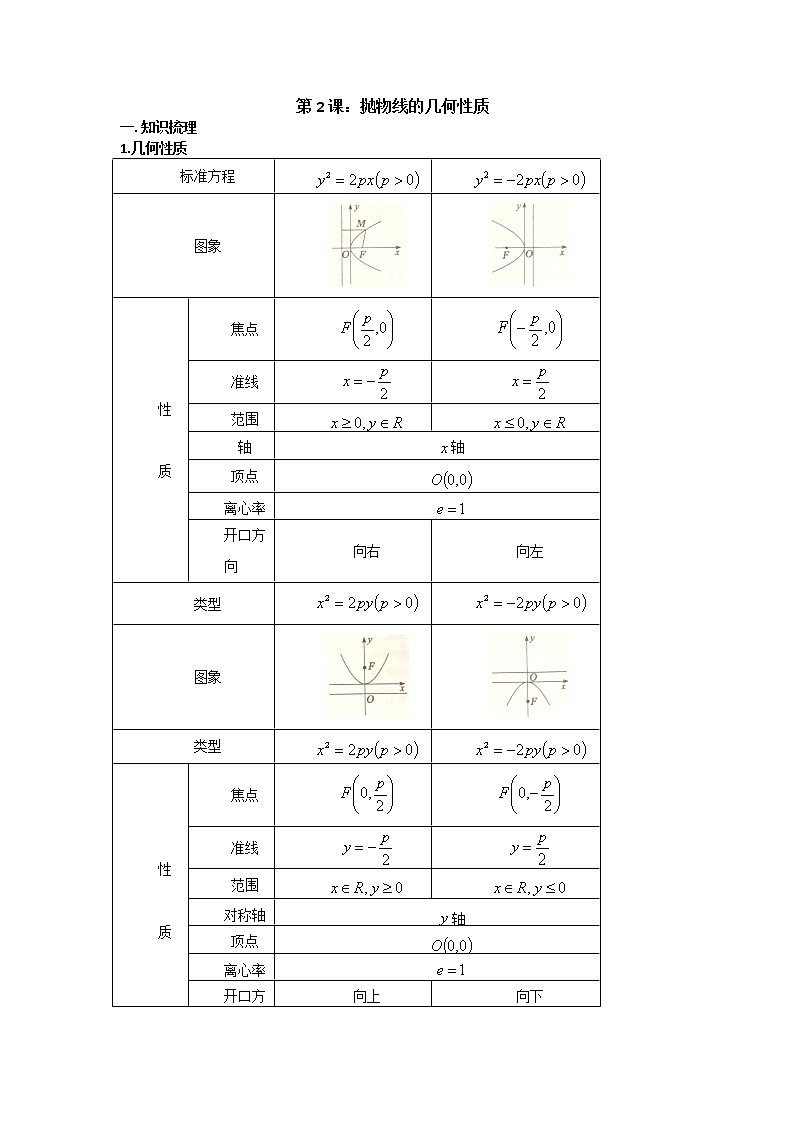 第2课：抛物线的几何性质
一.知识梳理
1.几何性质
标准方程 y²=2px(p>0) y²=-2px(p>0)
图象
y M O F x
y F O x
性
质
焦点 F(p/2,0) F(-p/2,0)
准线 x=-p/2 x=p/2
范围 x≥0,y∈R x≤0,y∈R
轴 x轴
顶点 O(0,0)
离心率 e=1
开口方
向
向右 向左
类型 x²=2py(p>0) x²=-2py(p>0)
图象
y F x O
y O x F
类型 x²=2py(p>0) x²=-2py(p>0)
性
质
焦点 F(0,p/2) F(0,-p/2)
准线 y=-p/2 y=p/2
范围 x∈R,y≥0 x∈R,y≤0
对称轴 y轴
顶点 O(0,0)
离心率 e=1
开口方 向上 向下